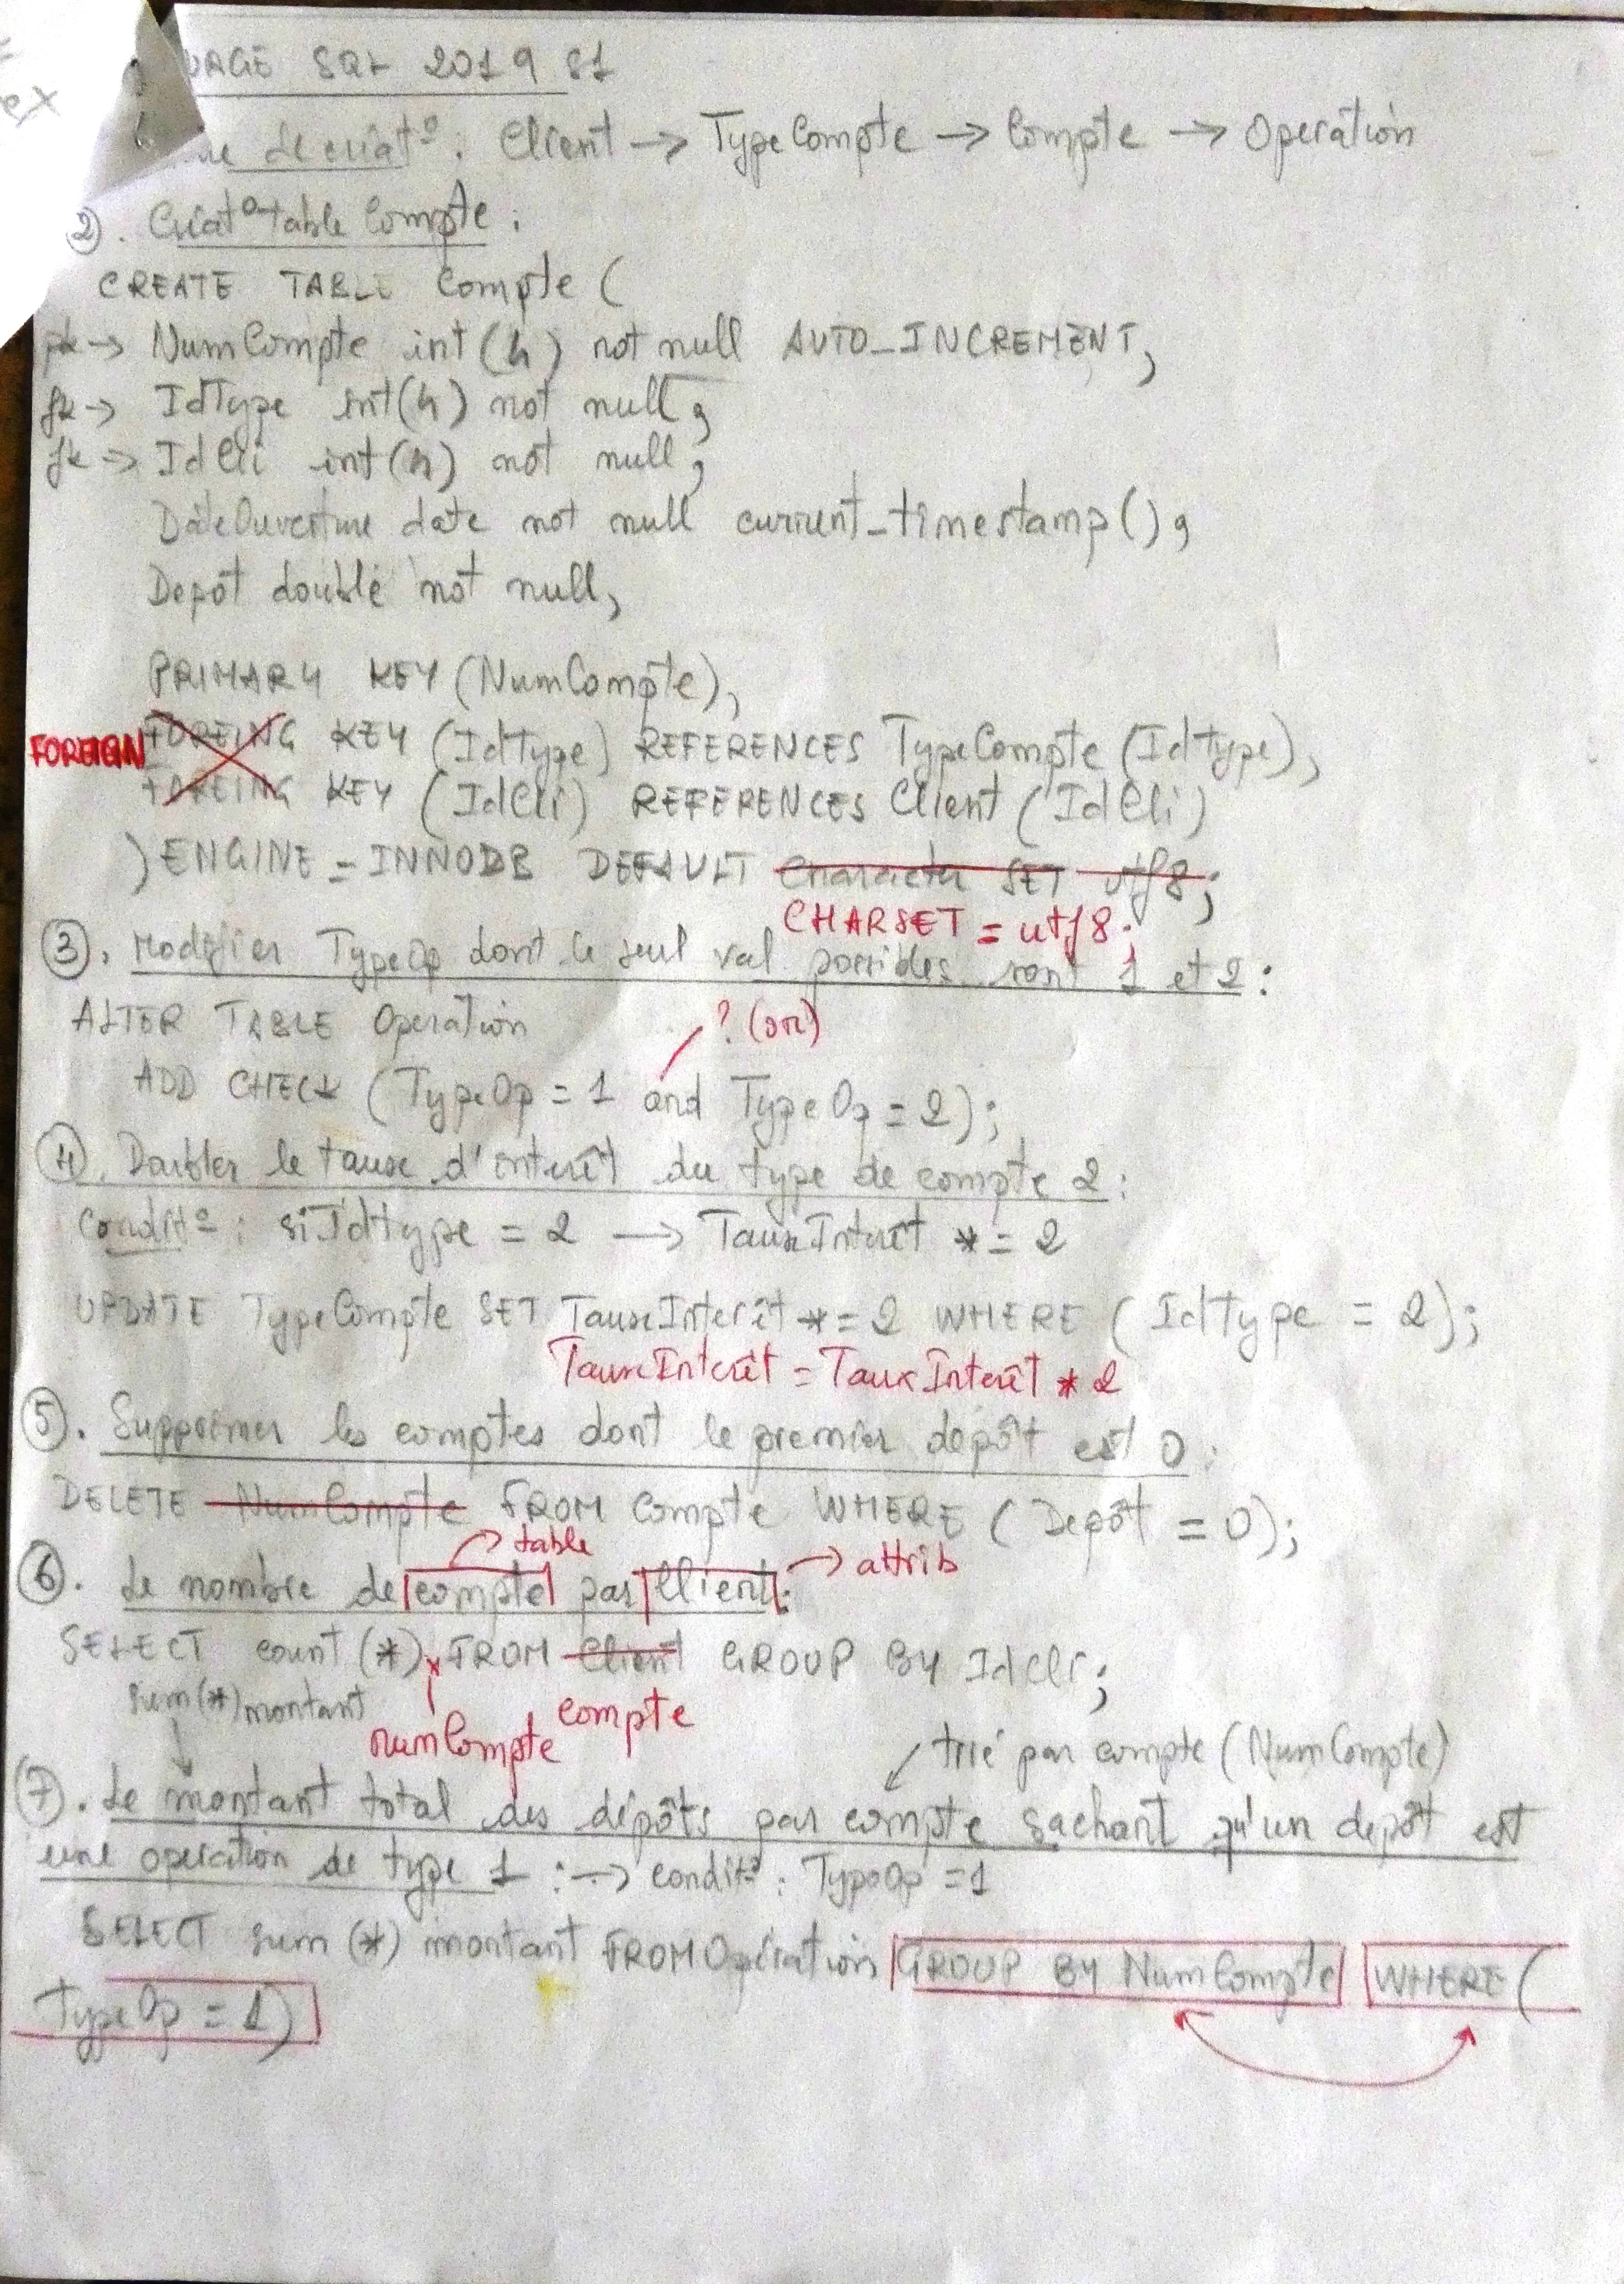 UAGE SQL 2019 S1
de créat°: Client → TypeCompte → Compte → Operation
2). Créat° table Compte :
CREATE TABLE Compte (
pk → NumCompte int(4) not null AUTO_INCREMENT,
fk → IdType int(4) not null,
fk → IdCli int(4) not null,
DateOuverture date not null current_timestamp(),
Depôt double not null,
PRIMARY KEY (NumCompte),
FOREIGN FOREING KEY (IdType) REFERENCES TypeCompte (Idtype),
FOREING KEY (IdCli) REFERENCES Client (IdCli)
) ENGINE = INNODB DEFAULT Character SET utf8;
CHARSET = utf8;
3). Modifier TypeOp dont le seul val possibles sont 1 et 2 :
ALTER TABLE Operation
? (or)
ADD CHECK (TypeOp = 1 and TypeOp = 2);
4). Doubler le taux d'interêt du type de compte 2 :
Condit° : si Idtype = 2 → TauxInterêt *= 2
UPDATE TypeCompte SET TauxInterêt *= 2 WHERE (Idtype = 2);
TauxInterêt = TauxInterêt * 2
5). Supprimer les comptes dont le premier depôt est 0 :
DELETE NumCompte FROM Compte WHERE (Depôt = 0);
→ table
6). Le nombre de compte par Client : → attrib
SELECT count (*), FROM Client GROUP BY IdCli;
sum(*) montant
numCompte compte
trié par compte (NumCompte)
7). Le montant total des dépôts par compte sachant qu'un depôt est
une operation de type 1 : → condit° : TypeOp = 1
SELECT sum (*) montant FROM Opération GROUP BY NumCompte WHERE (
TypeOp = 1)